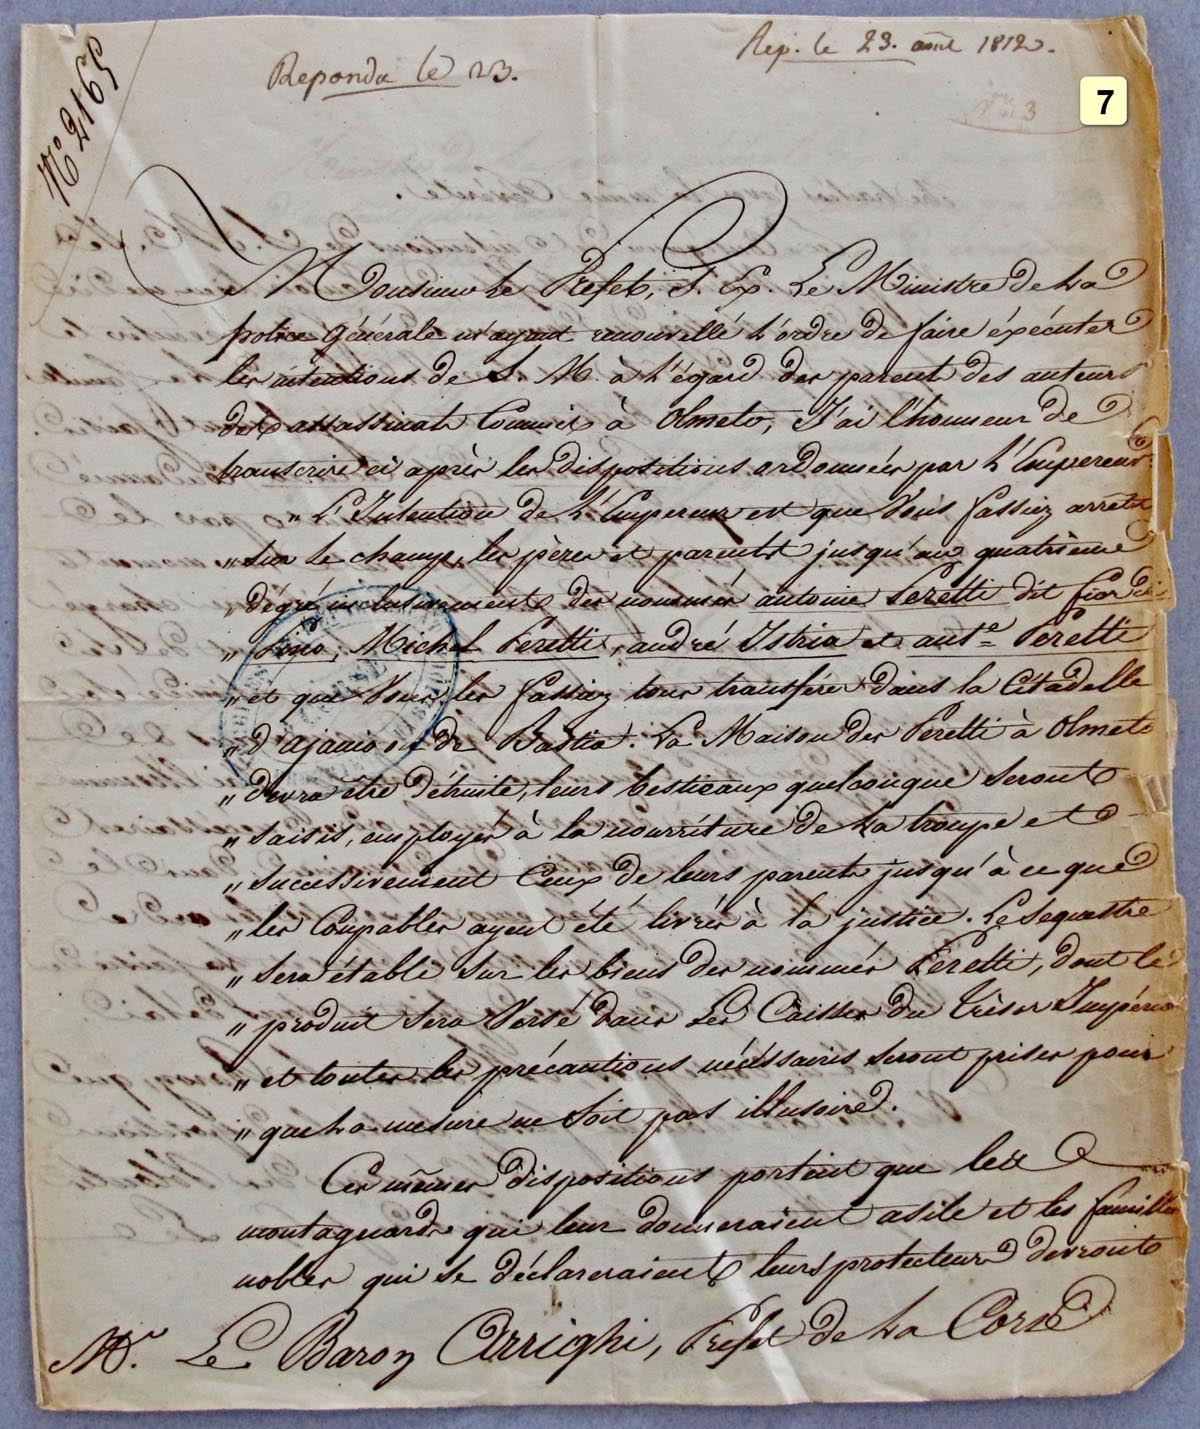 N.° 2165
Reponda le 23.
Rep. le 23. août 1812.
N.° 3
7
Monsieur le Préfet, S. Ex. Le Ministre de La
police Générale m'ayant renouvellé l'ordre de faire éxécuter
les intentions de S. M. à l'égard des parents des auteurs
des assassinats Commis à Olmeto, J'ai l'honneur de
transcrire ci après les dispositions ordonnées par l'Empereur.
„ L'Intention de l'Empereur est que Vous fassiez arreter
„ sur le champ, les pères et parents jusqu'au quatrième
„ dégré inclusivement des nommés antoine Peretti dit fior di
„ Michel Peretti, andré Istria et ant.e Peretti
„ et que Vous les fassiez tous transférer dans la Citadelle
„ d'ajaccio ou de Bastia. La Maison des Peretti à Olmeto
„ devra être détruite, leurs bestieaux quelconque seront
„ saisis, employés à la nourriture de La troupe et
„ successivement Ceux de leurs parents jusqu'à ce que
„ les Coupables ayent été livrés à la justice. Le Sequestre
„ sera établi sur les biens des nommés Peretti, dont le
„ produit sera Versé dans Les Caisses du Trésor Impérial
„ et toutes les précautions nécessaires seront prises pour
„ que La mesure ne soit pas illusoire.
Ces mêmes dispositions portent que les
montagnards qui leur donneraient asile et les familles
nobles qui se déclareraient leurs protecteurs devront
M.r Le Baron Arrighi, Préfet de La Corse